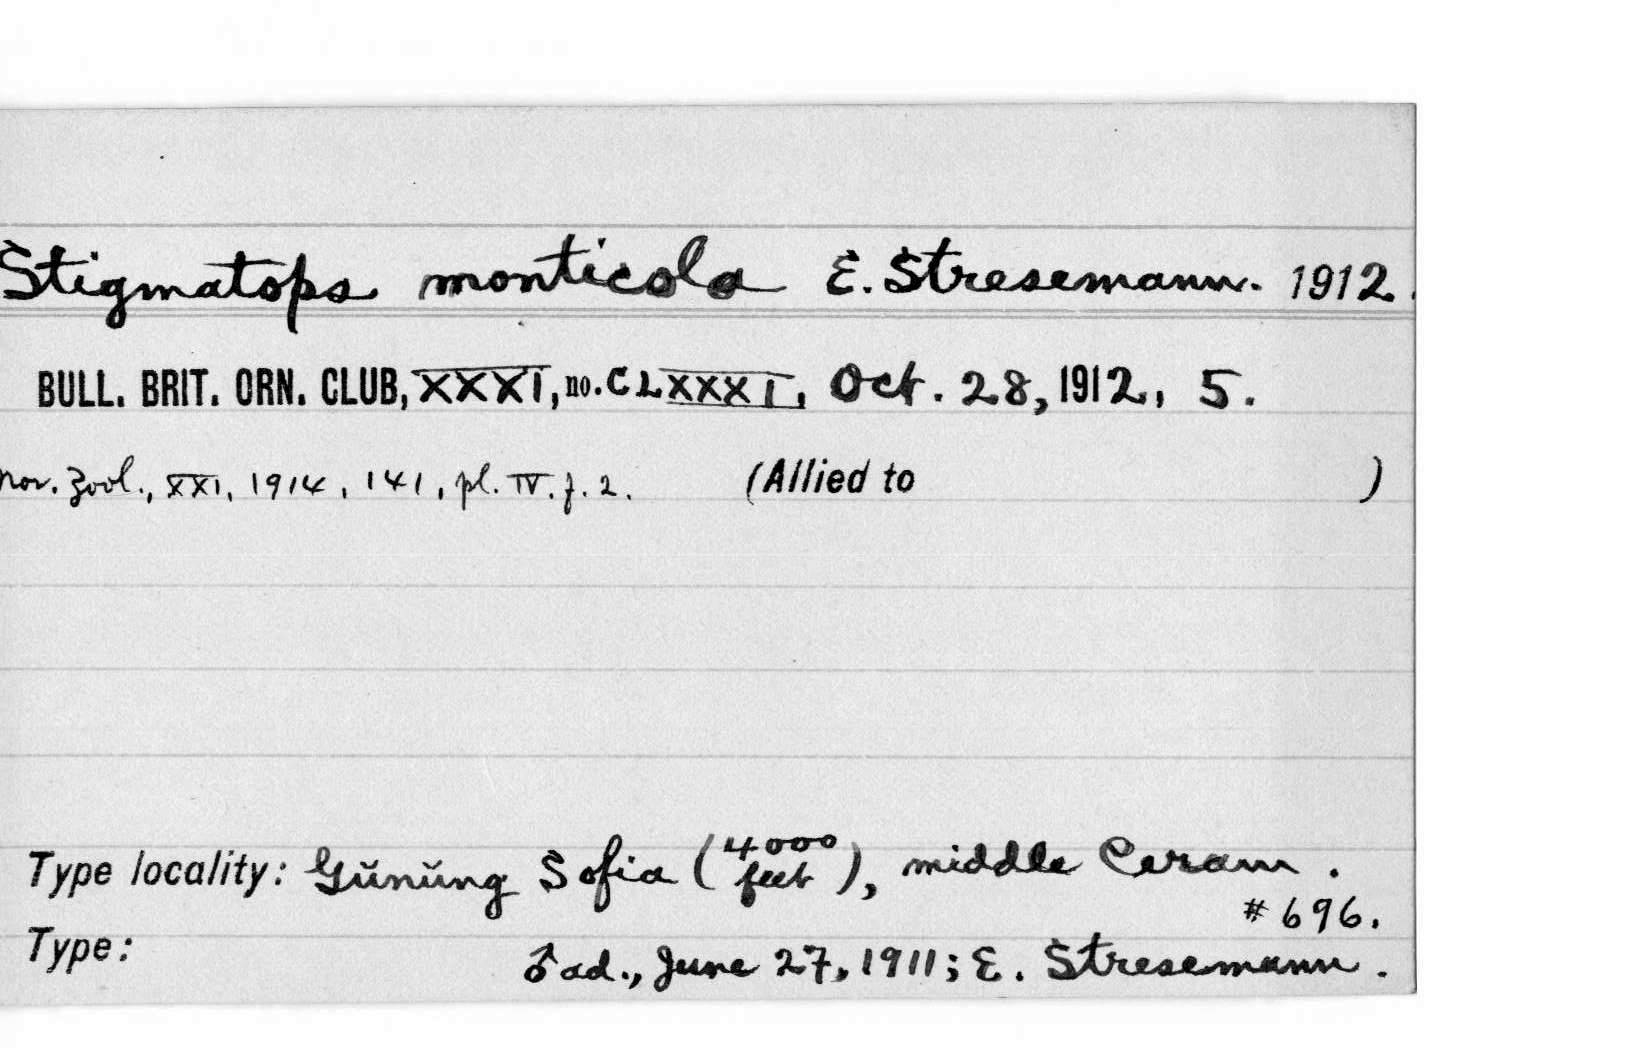 Stigmatops monticola E. Stresemann. 1912.
BULL. BRIT. ORN. CLUB, XXXI, no. CLXXXI, Oct. 28, 1912, 5.
nov. Zool., XXI, 1914, 141, pl. IV. f. 2. (Allied to )
Type locality: Gŭnŭng Sofia (4000 feet), middle Ceram.
#696.
Type: ♂ ad., June 27, 1911; E. Stresemann.